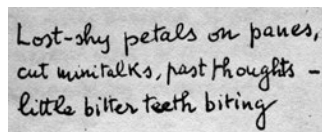 Lost-shy petals on panes,
cut minitalks, past thoughts –
little bitter teeth biting